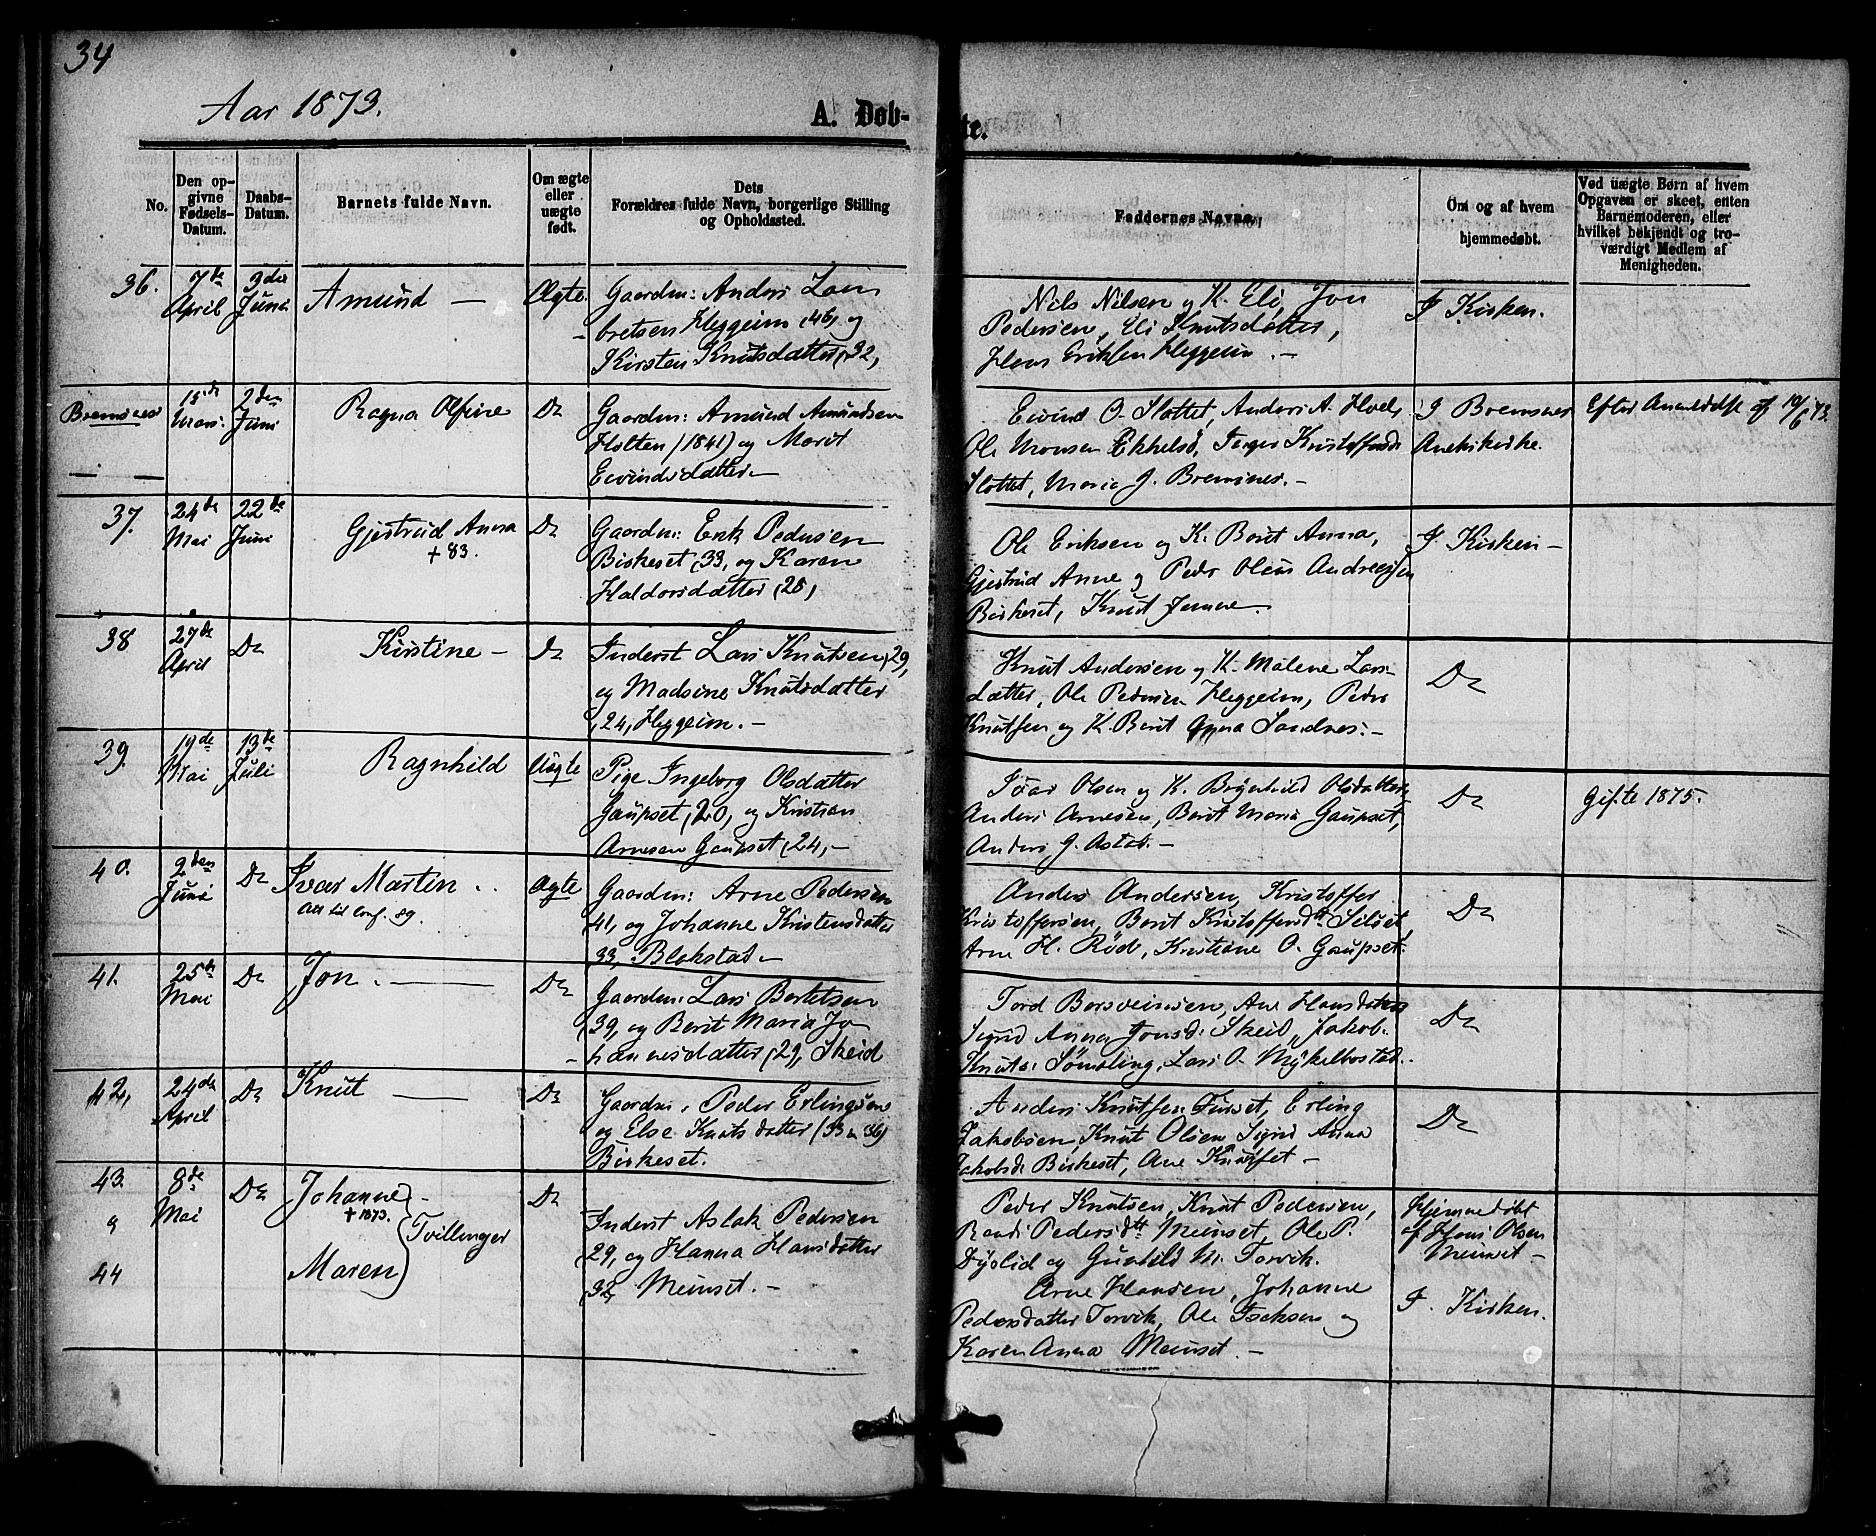 34
Aar 1873.
A. Døb-
te.
No.
Den op-
givne
Fødsels-
Datum.
Daabs-
Datum.
Barnets fulde Navn.
Om ægte
eller
uægte
født.
Dets
Forældres fulde Navn, borgerlige Stilling
og Opholdssted.
Faddernes Navne.
Om og af hvem
hjemmedøbt.
Ved uægte Børn af hvem
Opgaven er skeet, enten
Barnemoderen, eller
hvilket bekjendt og tro-
værdigt Medlem af
Menigheden.
36.
7de
April
Juni
Amund —
Ægte
Gaardm: Anders Lam
bretsen Heggeim (46, og
Kirsten Knutsdatter (32,
Nils Nilsen og K. Eli, Jon
Pedersen, Eli Knutsdatter,
Hans Eriksen Heggeim. —
I Kirken.
Bremsnes
15de
Mars
2den
Juni
Ragna Olfine
Do
Gaardm: Amund Amundsen
Holten (1841) og Marit
Eivindsdatter —
Eivind O. Slottet, Anders A. Hoel,
Ole Monsen Ekkelsø, Inger Kristoffersdr
Slottet, Maria J. Bremsnes. —
I Bremsnes
Anekskirke.
Efter Anmeldelse af 10/6 73.
37.
24de
Mai
22de
Juni
Gjertrud Anna
+ 83.
Do
Gaardm: Erik Pedersen
Birkeset (33, og Karen
Haldorsdatter (25,
Ole Eriksen og K. Berit Anna,
Gjertrud Anne og Peder Olaus Andreassen
Birkeset, Knut
I Kirken —
38
27de
April
Do
Kirstine —
Do
Inderst Lars Knutsen (29,
og Madsine Knutsdatter
(24, Heggeim. —
Knut Andersen og K. Malene Lars-
datter, Ole Pedersen Heggeim, Peder
Knutsen og K. Berit Anna Sandnes. —
Do
39.
19de
Mai
13de
Juli
Ragnhild
Uægte
Pige Ingeborg Olsdatter
Gaupset (20, og Kristian
Arnesen Gaupset (24, —
Ivar Olsen og K. Brynhild Olsdatter,
Anders Arnesen, Berit Maria Gaupset,
Anders J. Astad. —
Do
Gifte 1875.
40.
2den
Juni
Do
Ivar Martin
Att til Conf. 89.
Ægte
Gaardm: Arne Pedersen
41, og Johanne Kristensdatter
33, Blakstad —
Anders Andersen, Kristoffer
Kristoffersen, Berit Kristoffersdtr Silset
Arne H. Rød, Kristiane O. Gaupset.
Do
41.
25de
Mai
Do
Jon. —
Do
Gaardm: Lars Bertelsen
(39, og Berit Maria Jo
hannesdatter (29, Skeid
Tord Bersveinsen, Ane Hansdatter
Sigrid Anna Jonsd: Skeid, Jakob
Knuts: Sømling, Lars O. Mykelbostad.
Do
42,
24de
April
Do
Knut —
Do
Gaardm: Peder Erlingsen
og Else Knutsdatter (33 og 36)
Birkeset.
Anders Knutsen Furset, Erling
Jakobsen, Knut Olsen, Sigrid Anna
Jakobsdr Birkeset, Ane —
Do
43.
og
44
8de
Mai
Do
Johanne —
+ 1873.
Tvillinger
Maren
Do
Inderst Aslak Pedersen
(29, og Hanna Hansdatter
(32, Meinset. —
Peder Knutsen, Knut Pedersen,
Randi Pedersdtr Meinset, Ole P.
Dyrlid og Gunhild M. Torvik.
Arne Hansen, Johanne
Pedersdatter Torvik, Ole Isaksen og
Karen Anna Meinset. —
Hjemmedøbt
af Hans Olsen
Meinset —
I. Kirken.